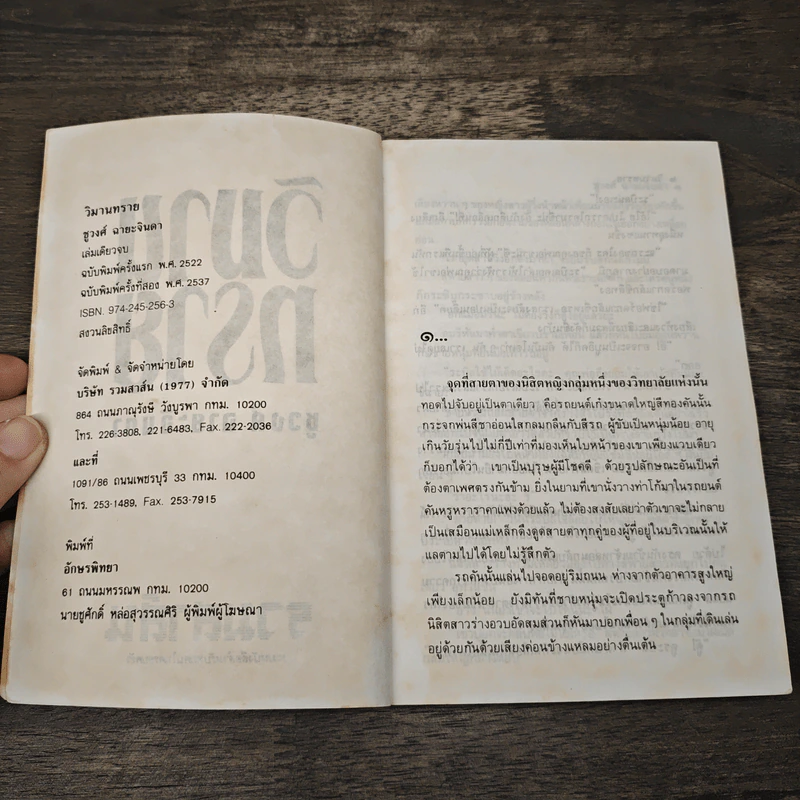 วิมานทราย
ชูวงศ์ ฉายะจินดา
เล่มเดียวจบ
ฉบับพิมพ์ครั้งแรก พ.ศ. 2522
ฉบับพิมพ์ครั้งที่สอง พ.ศ. 2537
ISBN. 974-245-256-3
สงวนลิขสิทธิ์
จัดพิมพ์ & จัดจำหน่ายโดย
บริษัท รวมสาส์น (1977) จำกัด
864 ถนนภาณุรังษี วังบูรพา กทม. 10200
โทร. 226-3808, 221-6483, Fax. 222-2036
และที่
1091/86 ถนนเพชรบุรี 33 กทม. 10400
โทร. 253-1489, Fax. 253-7915
พิมพ์ที่
อักษรพิทยา
61 ถนนมหรรณพ กทม. 10200
นายชูศักดิ์ หล่อสุวรรณศิริ ผู้พิมพ์ผู้โฆษณา
๑...
จุดที่สายตาของนิสิตหญิงกลุ่มหนึ่งของวิทยาลัยแห่งนั้น
ทอดไปจับอยู่เป็นตาเดียว คือรถยนต์เก๋งขนาดใหญ่สีทองคันนั้น
กระจกพ่นสีชาอ่อนใสกลมกลืนกับสีรถ ผู้ขับเป็นหนุ่มน้อย อายุ
เกินวัยรุ่นไปไม่กี่ปีเท่าที่มองเห็นใบหน้าของเขาเพียงแวบเดียว
ก็บอกได้ว่า เขาเป็นบุรุษผู้มีโชคดี ด้วยรูปลักษณะอันเป็นที่
ต้องตาเพศตรงกันข้าม ยิ่งในยามที่เขานั่งวางท่าโก้มาในรถยนต์
คันหรูหราราคาแพงด้วยแล้ว ไม่ต้องสงสัยเลยว่าตัวเขาจะไม่กลาย
เป็นเสมือนแม่เหล็กดึงดูดสายตาทุกคู่ของผู้ที่อยู่ในบริเวณนั้นให้
แลตามไปได้โดยไม่รู้สึกตัว
รถคันนั้นแล่นไปจอดอยู่ริมถนน ห่างจากตัวอาคารสูงใหญ่
เพียงเล็กน้อย ยังมิทันที่ชายหนุ่มจะเปิดประตูก้าวลงจากรถ
นิสิตสาวร่างอวบอัดสมส่วนก็หันมาบอกเพื่อน ๆ ในกลุ่มที่เดินเล่น
อยู่ด้วยกันด้วยเสียงค่อนข้างแหลมอย่างตื่นเต้น